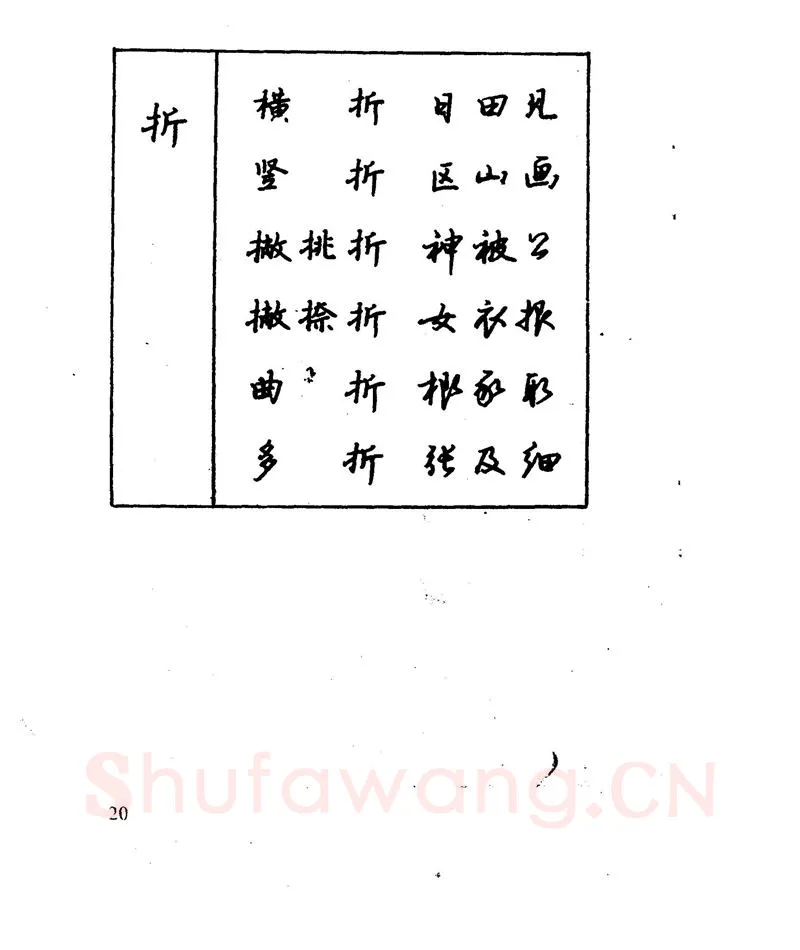 折
横 折 日 田 见
竖 折 区 山 画
撇 挑 折 神 被 公
撇 捺 折 女 衣 振
曲 折 根 家 取
多 折 张 及 细
20
Shufawang.CN